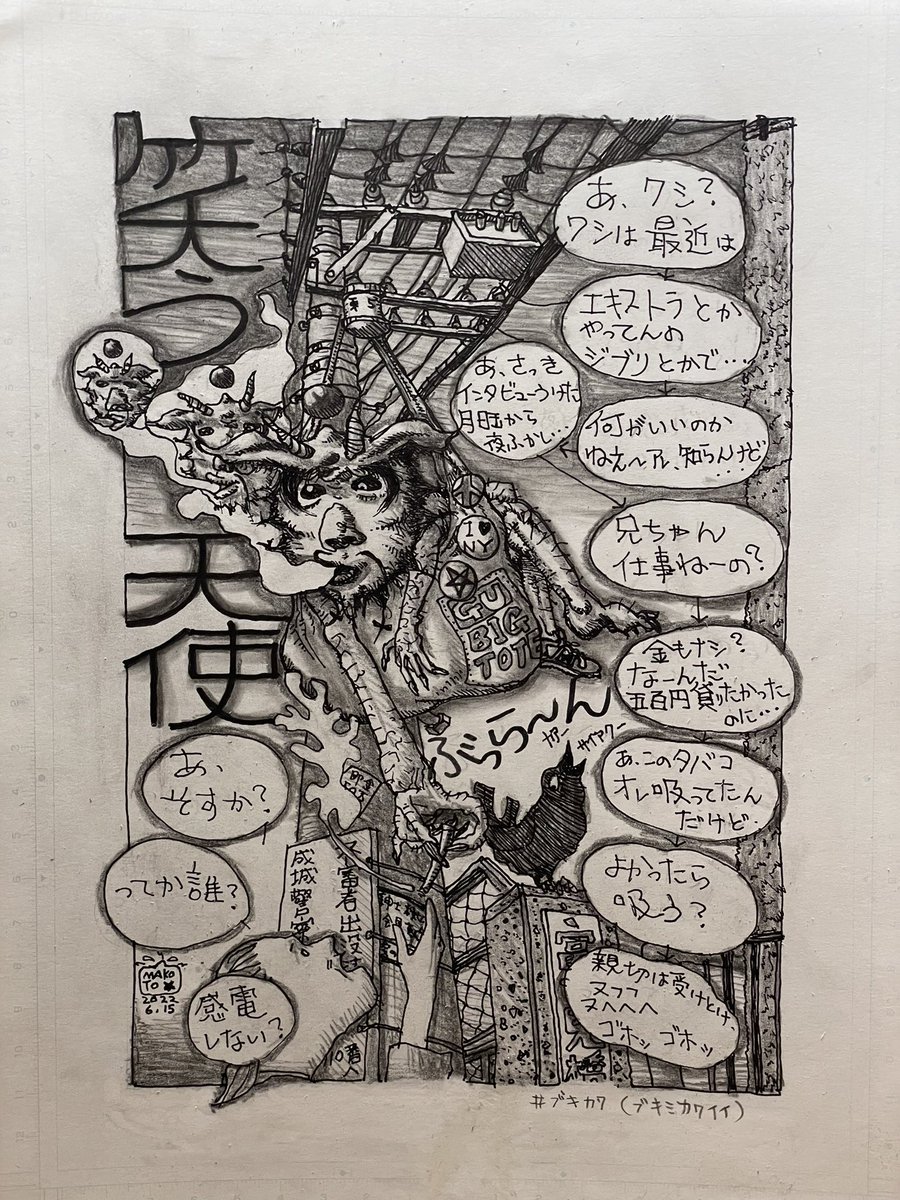 笑う
天使
あ、ワシ?
ワシは最近は
エキストラとか
やってんの
ジブリとかで…
何がいいのか
ねえ〜アレ、知らんけど
…
あ、さっき
インタビューうけた
夜ふかし…
兄ちゃん
仕事ねーの?
金もナシ?
なーんだ
五百円貸りたかった
のに…
あ、このタバコ
オレ吸ってたん
だけど
よかったら
吸う?
親切は受けとけ
ヌフフ
ヌヘヘヘ
ゴホッ ゴホッ
I ♥
NY
GU
BIG
TOTE
ぶら〜ん
サイアクー
あ、
そすか?
ってか誰?
感電
しない?
成城警察
10番へ
MAKO
TO
2022
6.15
#ブキカワ (ブキミカワイイ)